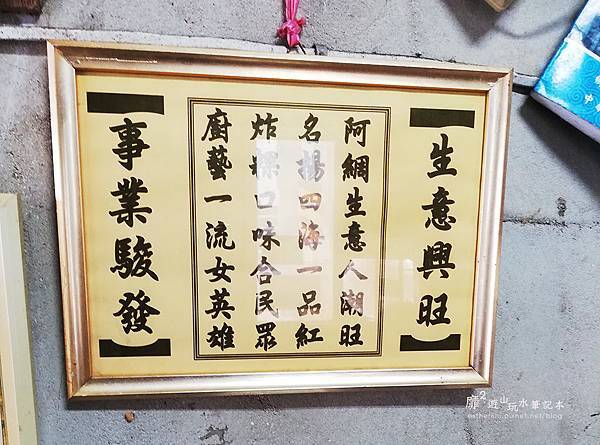 生意興旺
阿網生意人潮旺
名揚四海一品紅
炸粿口味合民眾
廚藝一流女英雄
事業駿發
靡²遊山玩水筆記本